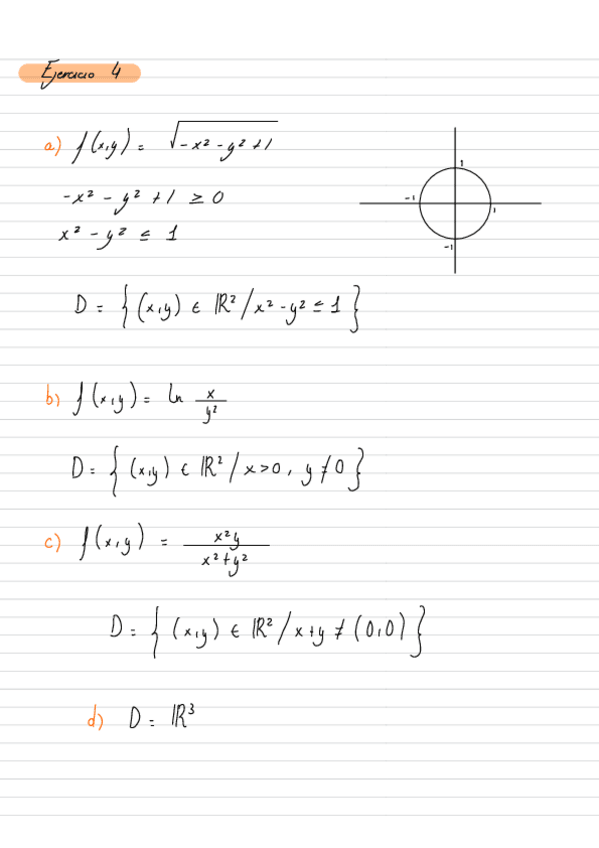 Ejercicio 4
a) f(x,y) = √(-x² - y² + 1)
1
-1
1
-1
-x² - y² + 1 ≥ 0
x² - y² ≤ 1
D = { (x,y) ∈ ℝ² / x² - y² ≤ 1 }
b) f(x,y) = ln x/y²
D = { (x,y) ∈ ℝ² / x > 0, y ≠ 0 }
c) f(x,y) = x²y / x² + y²
D = { (x,y) ∈ ℝ² / x + y ≠ (0,0) }
d) D = ℝ³